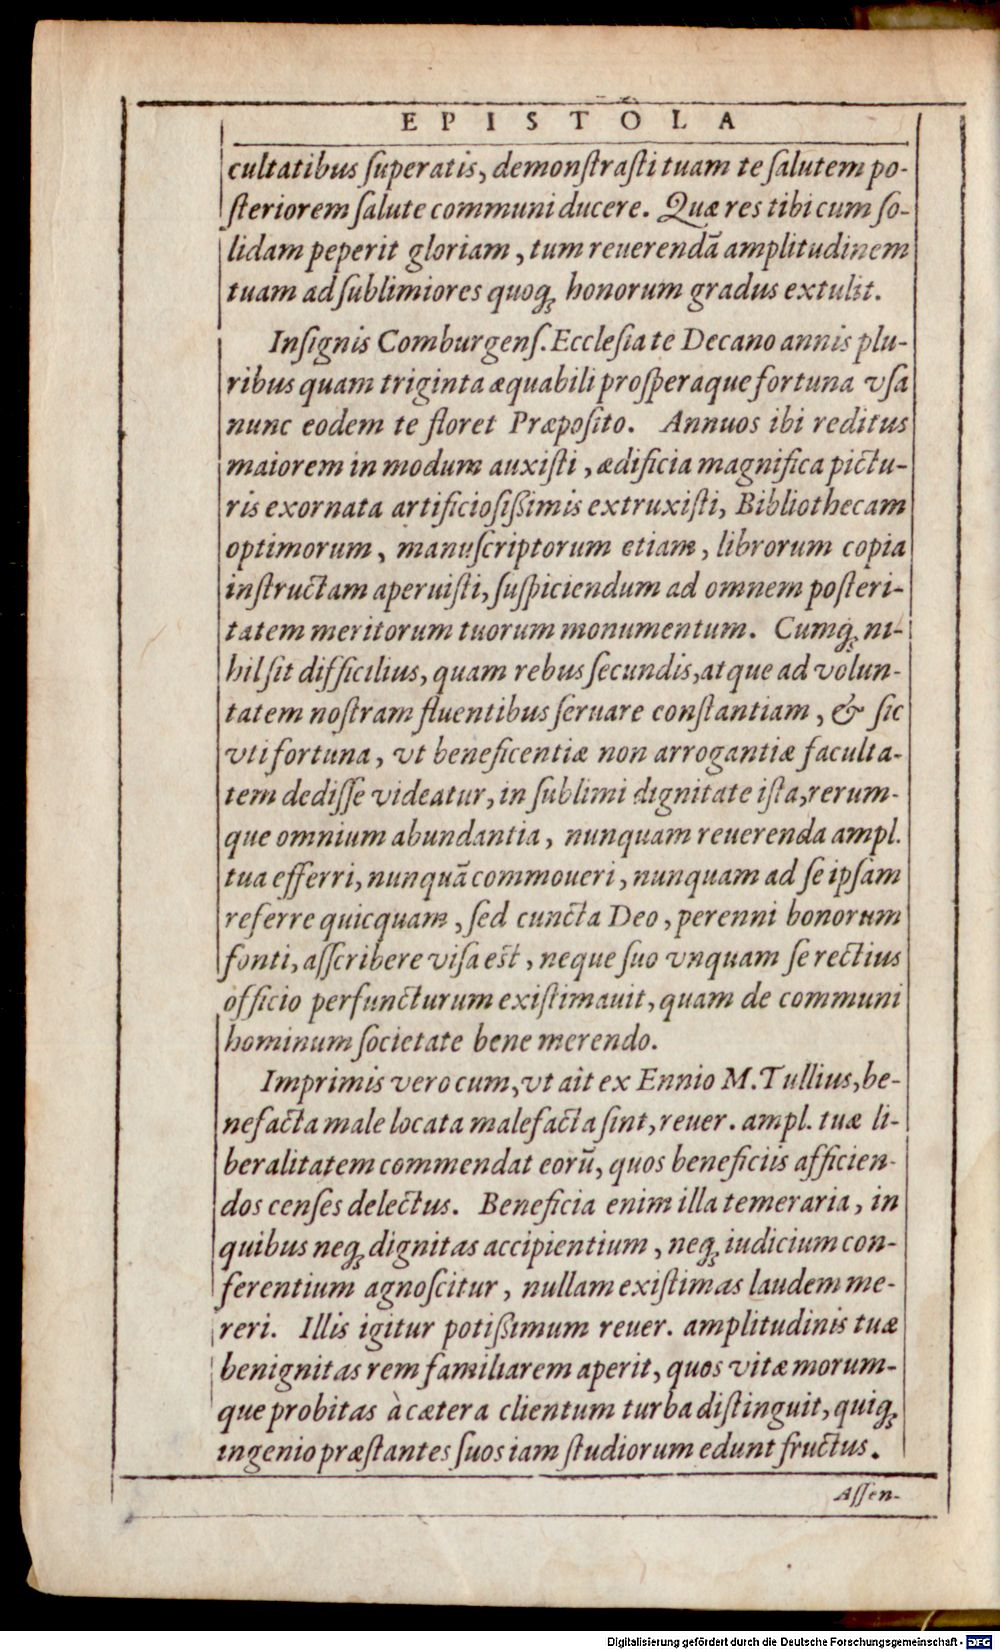 EPISTOLA
cultatibus ſuperatis, demonſtraſti tuam te ſalutem po-
ſteriorem ſalute communi ducere. Quæ res tibi cum ſo-
lidam peperit gloriam, tum reuerendā amplitudinem
tuam ad ſublimiores quoq́ꝫ honorum gradus extulit.
Inſignis Comburgenſ. Eccleſia te Decano annis plu-
ribus quam triginta æquabili proſperaque fortuna vſa
nunc eodem te floret Præpoſito. Annuos ibi reditus
maiorem in modum auxiſti, ædificia magnifica pictu-
ris exornata artificioſißimis extruxiſti, Bibliothecam
optimorum, manuſcriptorum etiam, librorum copia
inſtructam aperuiſti, ſuſpiciendum ad omnem poſteri-
tatem meritorum tuorum monumentum. Cumq́ꝫ ni-
hil ſit difficilius, quam rebus ſecundis, atque ad volun-
tatem noſtram fluentibus ſeruare conſtantiam, & ſic
vti fortuna, vt beneficentiæ non arrogantiæ faculta-
tem dediſſe videatur, in ſublimi dignitate iſta, rerum-
que omnium abundantia, nunquam reuerenda ampl.
tua efferri, nunquā commoueri, nunquam ad ſe ipſam
referre quicquam, ſed cuncta Deo, perenni bonorum
fonti, aſſcribere viſa est, neque ſuo vnquam ſe rectius
officio perfuncturum exiſtimauit, quam de communi
hominum ſocietate bene merendo.
Imprimis vero cum, vt ait ex Ennio M. Tullius, be-
nefacta male locata malefacta ſint, reuer. ampl. tuæ li-
beralitatem commendat eorū, quos beneficiis afficien-
dos cenſes delectus. Beneficia enim illa temeraria, in
quibus neq́ꝫ dignitas accipientium, neq́ꝫ iudicium con-
ferentium agnoſcitur, nullam exiſtimas laudem me-
reri. Illis igitur potißimum reuer. amplitudinis tuæ
benignitas rem familiarem aperit, quos vitæ morum-
que probitas à cætera clientum turba diſtinguit, quiq́ꝫ
ingenio præſtantes ſuos iam ſtudiorum edunt fructus.
Aſſen-
Digitalisierung gefördert durch die Deutsche Forschungsgemeinschaft - DFG